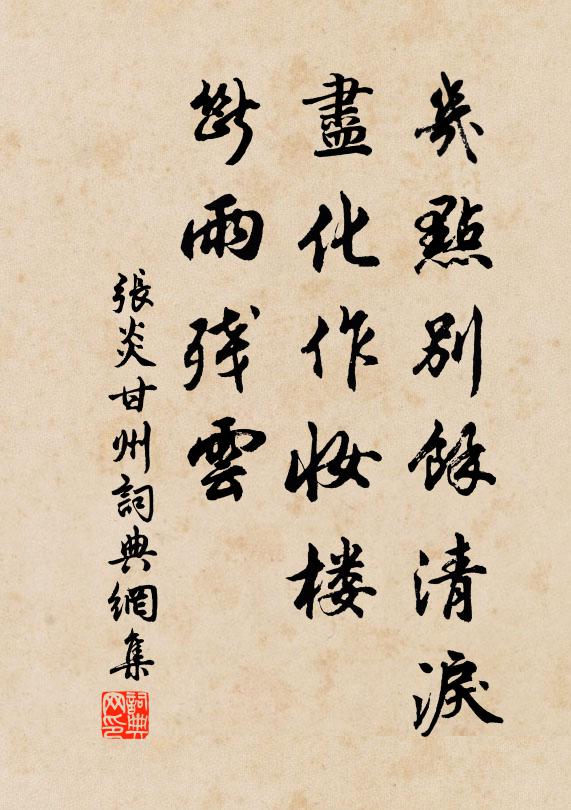 幾點別餘清淚
盡化作妝楼
斷雨残雲
張炎甘州詞典網集
詞典网印